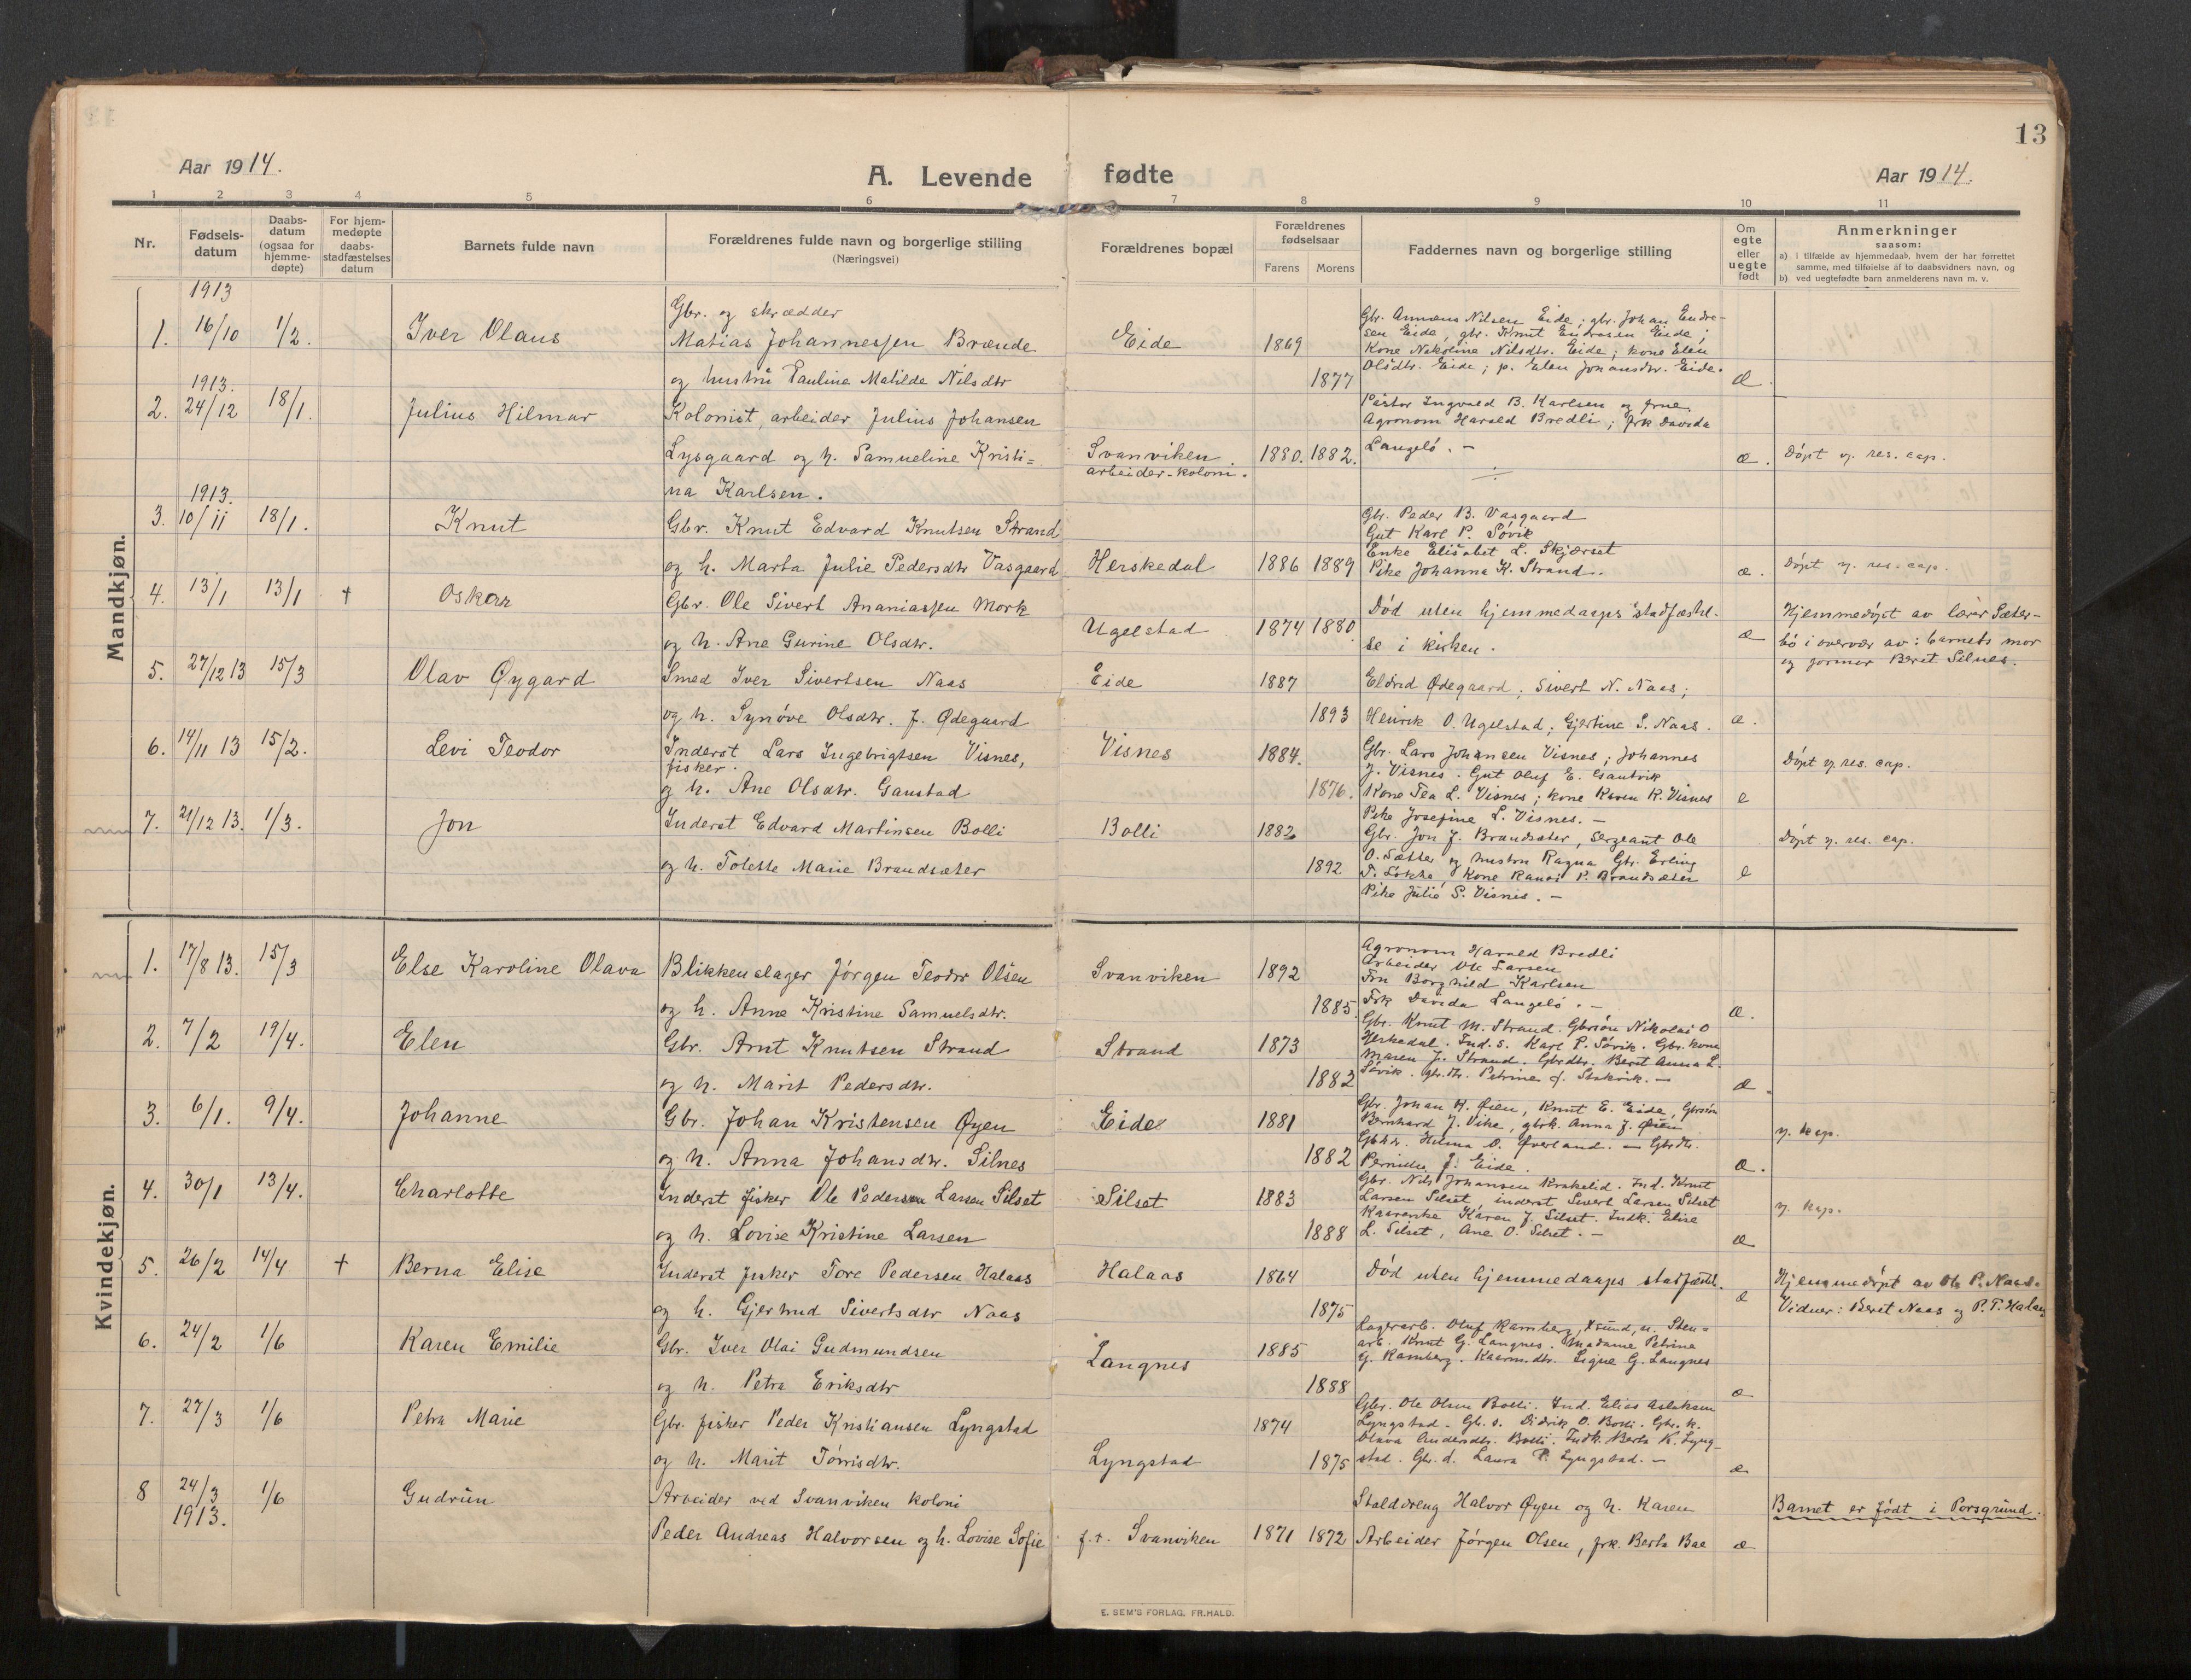 13
Aar 1914.
A. Levende fødte
Aar 1914.
1 2 3 4 5 6 7 8 9 10 11
Nr.
Fødsels-
datum
Daabs-
datum
(ogsaa for
hjemme-
døpte)
For hjem-
medøpte
daabs-
stadfæstelses
datum
Barnets fulde navn
Forældrenes fulde navn og borgerlige stilling
(Næringsvei)
Forældrenes bopæl
Forældrenes
fødselsaar
Farens Morens
Faddernes navn og borgerlige stilling
Om
egte
eller
uegte
født
Anmerkninger
saasom:
a) i tilfælde av hjemmedaab, hvem der har forrettet
samme, med tilføielse af to daabsvidners navn, og
b) ved uegtefødte barn anmelderens navn m. v.
Mandkjøn.
1913
1. 16/10 1/2. Iver Olaus
Gbr. og skrædder
Matias Johannessen Brænde
og hustru Pauline Matilde Nilsdtr
Eide 1869 1877
Gbr. Annæus Nilsen Eide; gbr. Johan Endre-
sen Eide, gbr. Knut Endresen Eide;
Kone Nekoline Nilsdtr. Eide; kone Elen
Olsdtr. Eide; p. Elen Johansdtr. Eide.
æ.
1913.
2. 24/12 18/1. Julius Hilmar
Kolonist, arbeider Julius Johansen
Lysgaard og h. Samueline Kristi=
na Karlsen.
Svanviken
arbeider-koloni.
1880. 1882.
Pastor Ingvald B. Karlsen og frue,
Agronom Harald Bredli; frk Davida
Langelö. -
æ. Döpt v. res. cap.
1913.
3. 10/11 18/1. Knut
Gbr. Knut Edvard Knutsen Strand
og h. Marta Julie Pedersdtr Vasgaard
Herskedal 1886 1889
Gbr. Peder B. Vasgaard
Gut Karl P. Sövik
Enke Elisabet L. Skjærset
Pike Johanna K. Strand.
æ. Döpt v. res. cap.
4. 13/1 13/1 † Oskar
Gbr. Ole Sivert Ananiassen Mork
og h. Ane Gurine Olsdtr.
Ugelstad 1874 1880
Död uten hjemmedaaps stadfæstel-
se i kirken.
æ
Hjemmedöpt av lærer Sæter-
bö i overvær av: barnets mor
og jormor Beret Silnes.
5. 27/12 13 15/3 Olav Øygard
Smed Iver Sivertsen Naas
og h. Synöve Olsdtr. f. Ødegaard
Eide 1887 1893
Eldrid Ødegaard; Sivert N. Naas;
Henrik O. Ugelstad; Gjertine S. Naas.
æ.
6. 14/11 13 15/2. Levi Teodor
Inderst Lars Ingebrigtsen Visnes,
fisker.
og h. Ane Olsdtr. Gaustad
Visnes 1884. 1876.
Gbr. Lars Johansen Visnes; Johannes
J. Visnes. Gut Oluf E. Gautvik
Kone Tea L. Visnes; kone Karen K. Visnes
Pike Josefine L. Visnes. -
e Döpt v. res. cap.
7. 21/12 13. 1/3. Jon
Inderst Edvard Martinsen Bolli
og h. Tolette Marie Brandsæter
Bolli 1882 1892
Gbr. Jon J. Brandsæter, Sergeant Ole
O. Sætter og hustru Ragna Gbr. Erling
Kone P. Brandsæter
Pike Julie S. Visnes. -
e Döpt v. res. cap.
Kvindekjøn.
1. 17/8 13. 15/3 Else Karoline Olava
Blikkenslager Jörgen Teodor Olsen
og h. Anne Kristine Samuelsdtr.
Svanviken 1892 1885.
Agronom Harald Bredli
Arbeider Ole Larsen
Fru Borghild Karlsen
Frk Davida Langelö. -
æ.
2. 7/2 19/4. Elen
Gbr. Arnt Knutsen Strand
og h. Marit Pedersdtr.
Strand 1873 1882
Gbr. Knut M. Strand. Gbrsön Nikolai O
Herskedal. Ind. s. Karl P. Sövik. Gbr. kone
Maren J. Strand. Gbrdtr. Berit Anna L.
Sövik. gbr. dtr. Petrine
æ.
3. 6/1. 9/4. Johanne
Gbr. Johan Kristensen Øyen
og h. Anna Johansdtr. Silnes
Eide 1881 1882
Gbr. Johan H. Øien, Knut E. Eide, Gbrsön
Bernhard J. Vike, gbrk. Anna J. Øien
O. Øverland. - Gbrdtr.
J. Eide.
æ. v. kap.
4. 30/1 13/4. Charlotte
Inderst fisker Ole Pedersen Larsen Silset
og h. Lovise Kristine Larsen
Silset 1883 1888
Gbr. Nils Johansen Krakelid. Ind. Knut
Larsen Silset, inderst Sivert Larsen Silset
Karen J. Silset. Indk. Elise
L. Silset, Ane O. Silset. -
æ v. kap.
5. 26/2 14/4 † Berna Elise
Inderst fisker Tore Pedersen Halaas
og h. Gjertrud Sivertsdtr Naas
Halaas 1864 1875
Död uten hjemmedaaps stadfæstel.
æ
Hjemmedöpt av Ole P. Naas.
Vidner: Beret Naas og P. T. Halaas
6. 24/2 1/6 Karen Emilie
Gbr. Iver Olai Gudmundsen
og h. Petra Eriksdtr
Langnes 1885 1888
Lagerarb. Oluf Ramberg, Xsund, u. Sten=
arb. Knut G. Langnes. Madame Petrine
G. Ramberg. Kaarm.dtr. Signe G. Langnes
æ
7. 27/3 1/6 Petra Marie
Gbr. fisker Peder Kristiansen Lyngstad
og h. Marit Törrisdtr.
Lyngstad 1874 1875
Gbr. Ole Olsen Bolli. Ind. Elias Aslaksen
Lyngstad. Gb. s. Didrik O. Bolli. Gbr. k.
Olava Andersdtr. Bolli. Indk. Berta K. Lyng-
stad. Gbr. d. Laura P. Lyngstad. -
æ
8 24/3
1913. 1/6 Gudrun
Arbeider ved Svanviken koloni
Peder Andreas Halvorsen og h. Lovise Sofie
f.t. Svanviken 1871 1872
Stalddreng Halvor Øyen og h. Karen
Arbeider Jörgen Olsen, frk. Berta Bae
æ
Barnet er födt i Porsgrund.
E. SEM'S FORLAG, FR.HALD.